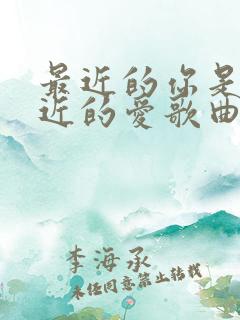 最近的你是
近的愛歌曲
李海承
未经同意禁止转载